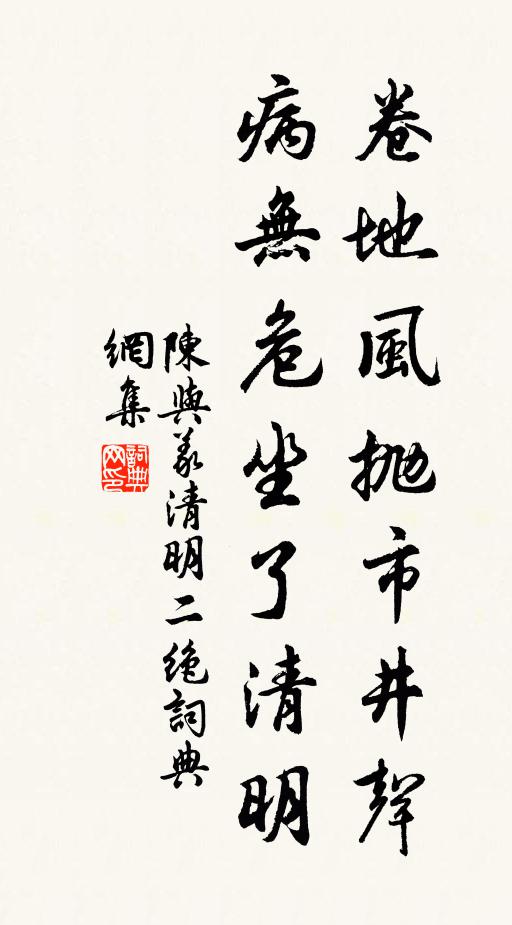 卷地風拋市井聲
病無危坐了清明
陳與義清明二絶詞典
網集
詞典
网印